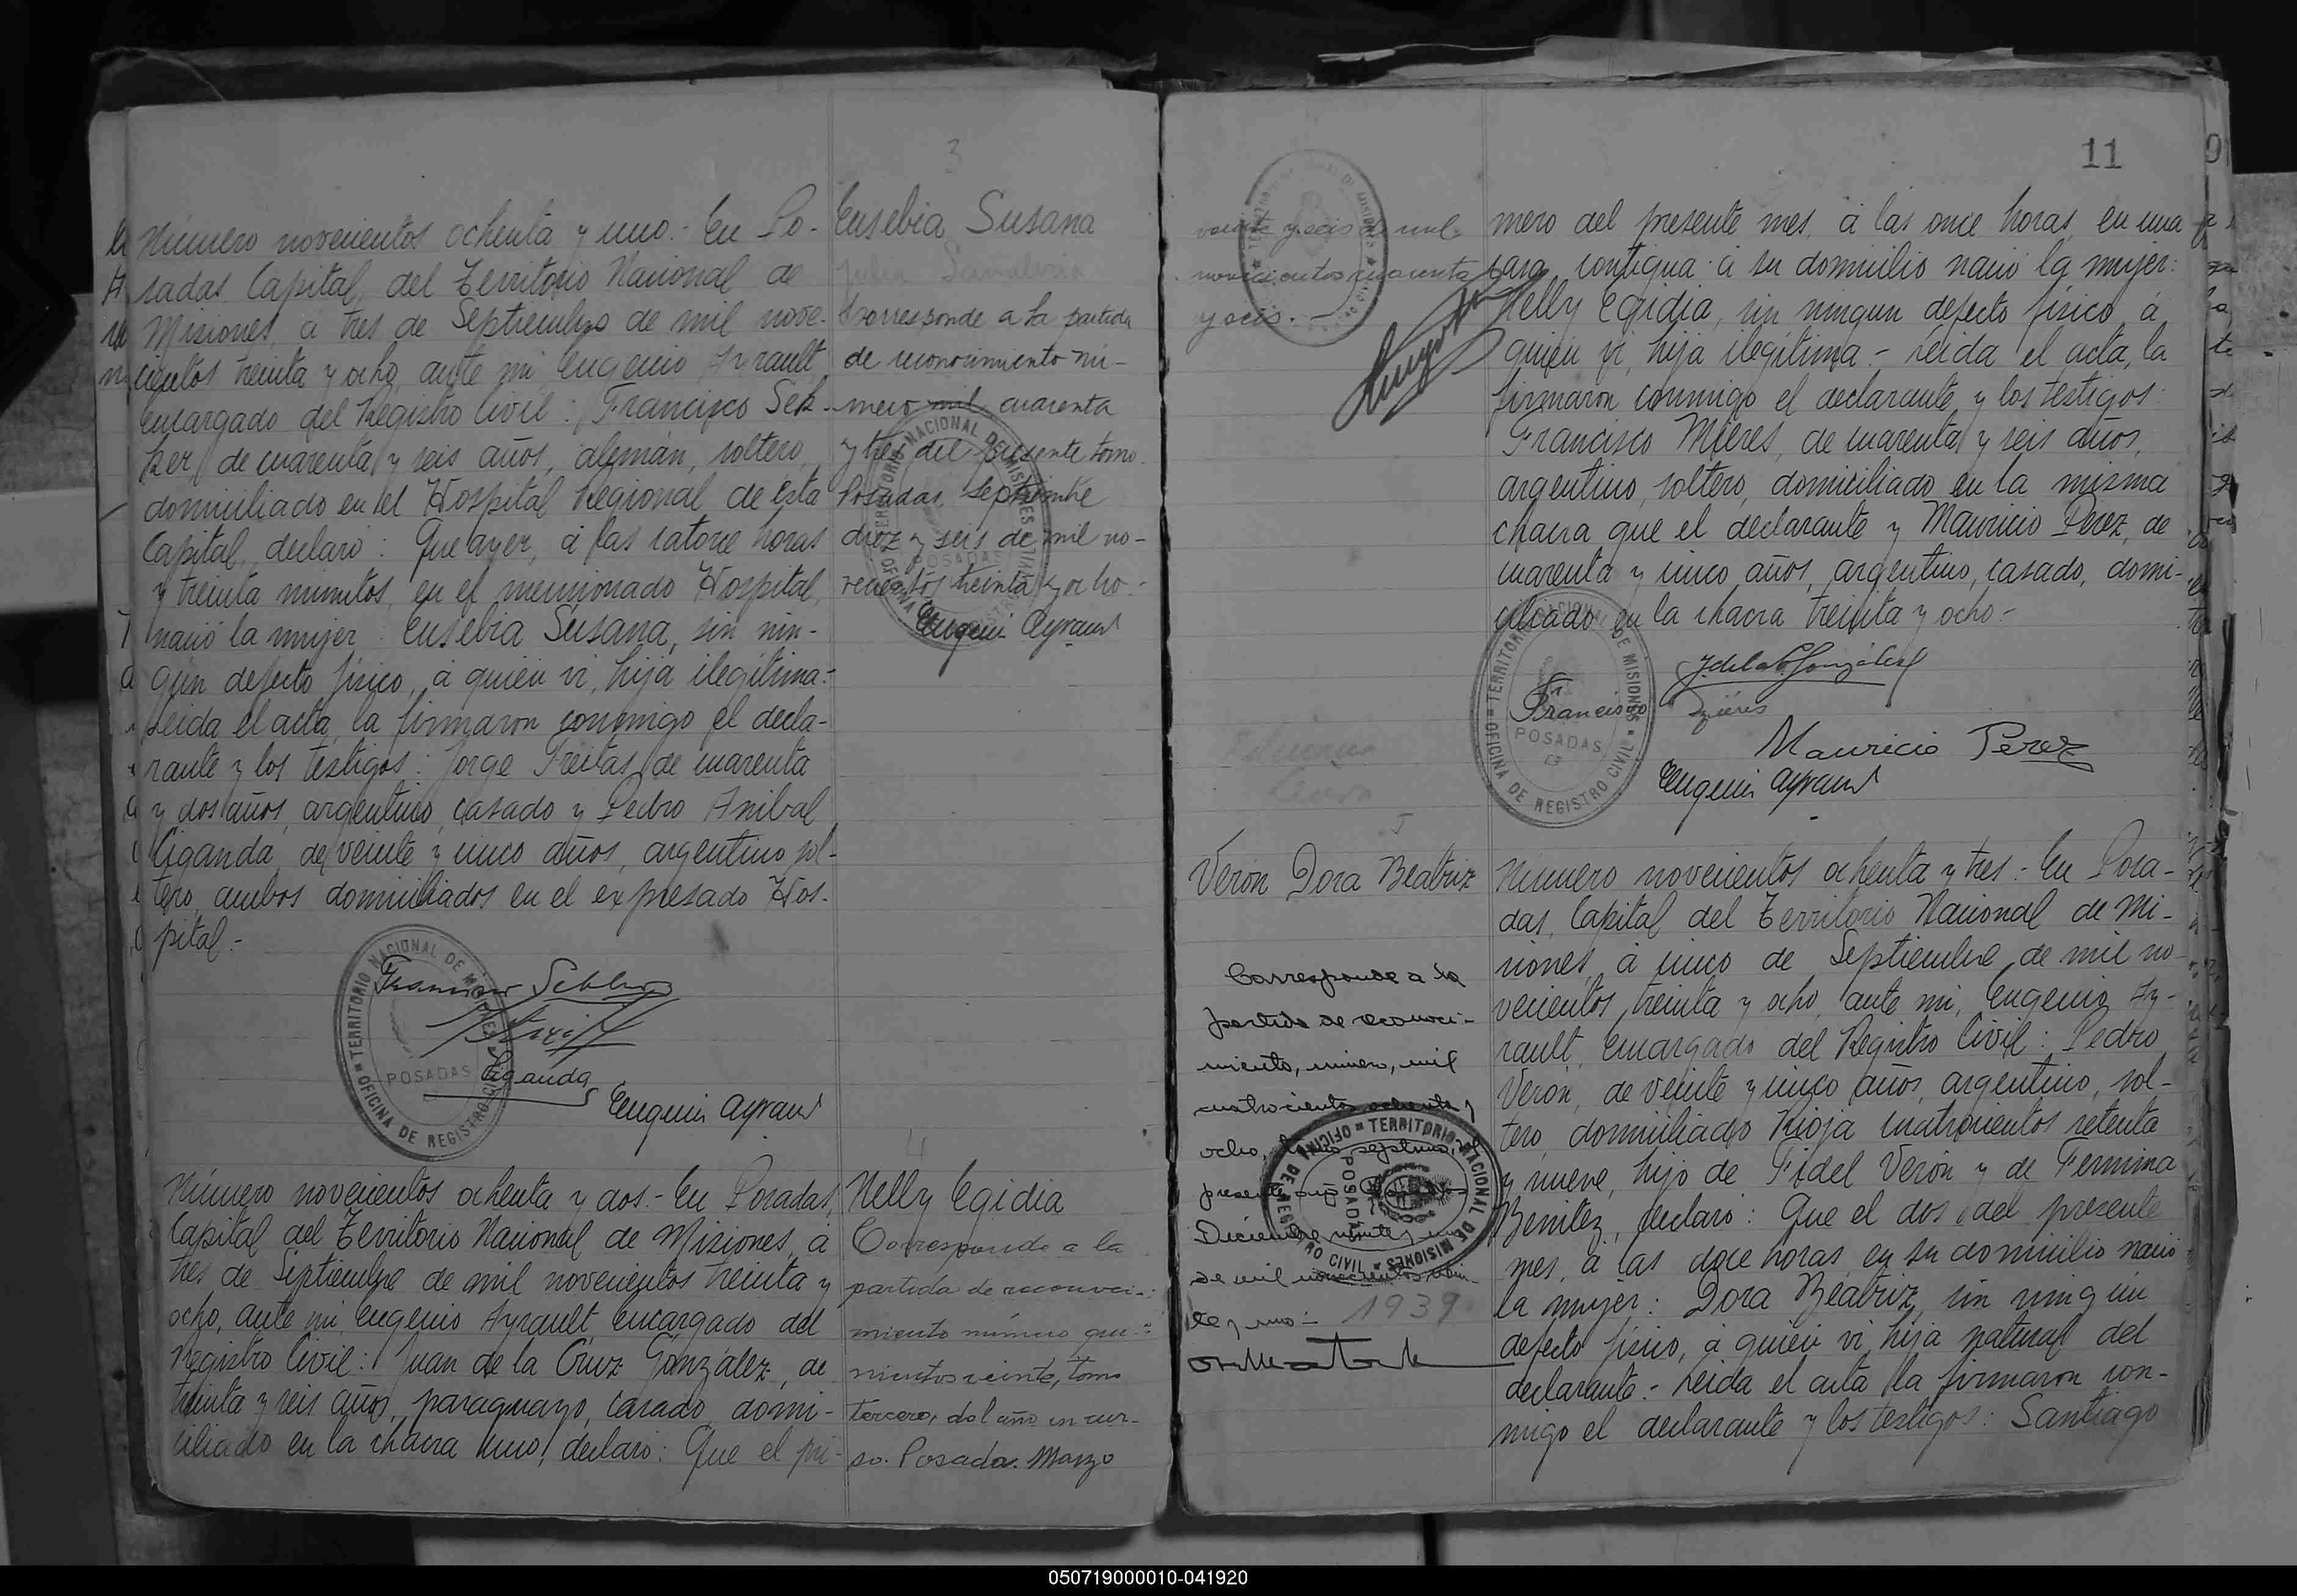 Número novecientos ochenta y uno.- En Po-
sadas, Capital, del Territorio Nacional de
Misiones, á tres de Septiembre de mil nove-
cientos treinta y ocho, ante mi, Eugenio Ayrault,
encargado del Registro Civil: Francisco Sek-
ker, de cuarenta y seis años, alemán, soltero,
domiciliado en el Hospital Regional de esta
Capital, declaró: Que ayer, á las catorce horas
y treinta minutos, en el mencionado Hospital,
nació la mujer: Eusebia Susana, sin nin-
gún defecto físico, á quien vi, hija ilegítima.-
Leida el acta, la firmaron conmigo el decla-
rante y los testigos: Jorge Freitas, de cuarenta
y dos años, argentino, casado y Pedro Anibal
Ciganda, de veinte y cinco años, argentino, sol-
tero, ambos domiciliados en el expresado Hos-
pital.-
TERRITORIO NACIONAL DE MISIONES
POSADAS
OFICINA DE REGISTRO CIVIL
Francisco
Ciganda
Eugenio Ayrault
3
Eusebia Susana
Corresponde a la partida
de reconocimiento nú-
mero mil cuarenta
y tres del presente tomo.
Posadas, Septiembre
diez y seis de mil no-
vecientos treinta y ocho.-
TERRITORIO NACIONAL DE MISIONES
POSADAS
Eugenio Ayrault
Número novecientos ochenta y dos.- En Posadas,
Capital del Territorio Nacional de Misiones, á
tres de Septiembre de mil novecientos treinta y
ocho, ante mi, Eugenio Ayrault, encargado del
Registro Civil: Juan de la Cruz González, de
treinta y seis años, paraguayo, casado, domi-
ciliado en la chacra uno, declaró: Que el pri-
4
Nelly Egidia
Corresponde a la
partida de reconoci-
miento número qui-
nientos veinte, tomo
tercero, del año en cur-
so. Posadas. Marzo
veinte y seis de mil
novecientos cuarenta
y seis.-
11
mero del presente mes, á las once horas, en una
casa contigua á su domicilio nació la mujer:
Nelly Egidia, sin ningun defecto físico, á
quien vi, hija ilegítima.- Leida el acta, la
firmaron conmigo el declarante y los testigos:
Francisco Mieres, de cuarenta y seis años,
argentino, soltero, domiciliado en la misma
chacra que el declarante y Mauricio Perez, de
cuarenta y cinco años, argentino, casado, domi-
ciliado en la chacra treinta y ocho.-
TERRITORIO NACIONAL DE MISIONES
POSADAS
OFICINA DE REGISTRO CIVIL
J de la C González
Francisco Mieres
Mauricio Perez
Eugenio Ayrault
5
Verón Dora Beatriz
Corresponde a la
partida de reconoci-
miento, número, mil
cuatrocientos ochenta y
ocho, tomo septimo, del
presente año
Diciembre veinte y uno
de mil novecientos trein-
ta y
1939
OFICINA DE REGISTRO CIVIL
TERRITORIO NACIONAL DE MISIONES
POSADAS
Número novecientos ochenta y tres.- En Posa-
das, Capital del Territorio Nacional de Mi-
siones, á cinco de Septiembre de mil no-
vecientos treinta y ocho, ante mi, Eugenio Ay-
rault, encargado del Registro Civil: Pedro
Verón, de veinte y cinco años, argentino, sol-
tero, domiciliado Rioja cuatrocientos setenta
y nueve, hijo de Fidel Verón y de Fermina
Benítez, declaró: Que el dos del presente
mes, á las doce horas, en su domicilio nació
la mujer: Dora Beatriz, sin ningún
defecto físico, á quien vi, hija natural del
declarante.- Leida el acta, la firmaron con-
migo el declarante y los testigos: Santiago
050719000010-041920